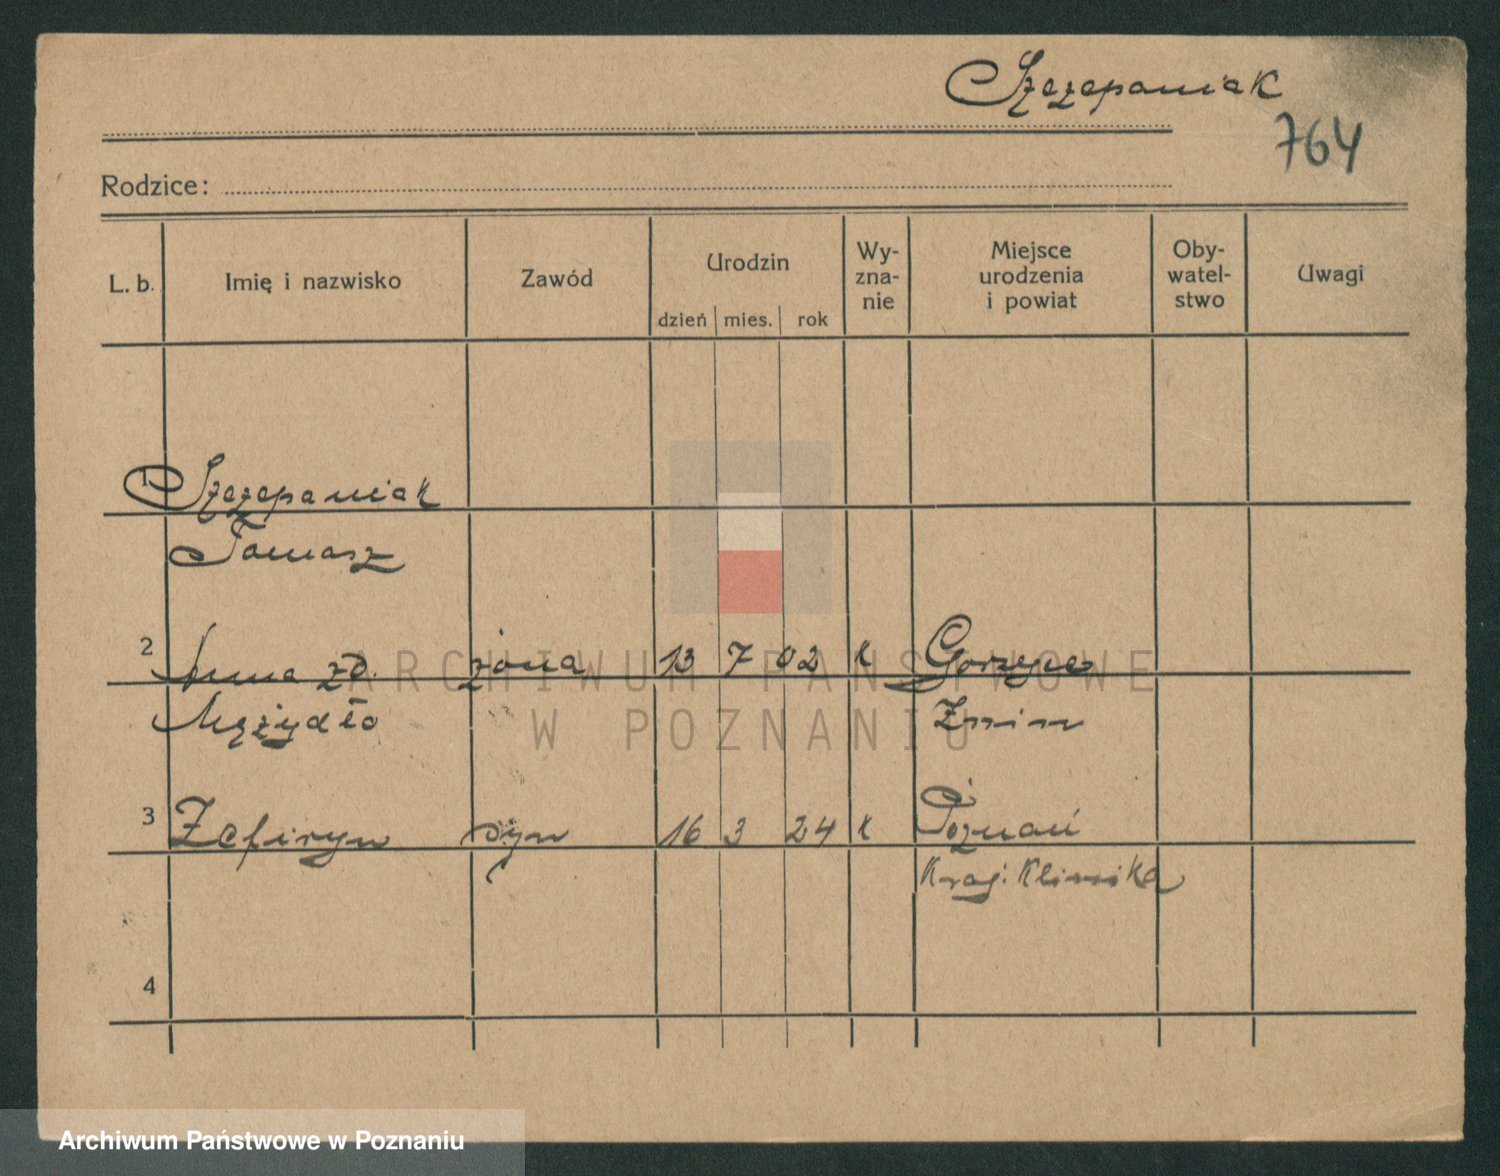 Szczepaniak
764
Rodzice:
L. b. Imię i nazwisko Zawód Urodzin dzień mies. rok Wy-zna-nie Miejsce urodzenia i powiat Oby-watel-stwo Uwagi
1 Szczepaniak
Tomasz
2 Anna zd. żona 13 7 02 K
Mężydło Żnin
3 Zefiryn syn 16 3 24 K Poznań
Kraj. Klinika
4
ARCHIWUM PAŃSTWOWE
W POZNANIU
Archiwum Państwowe w Poznaniu